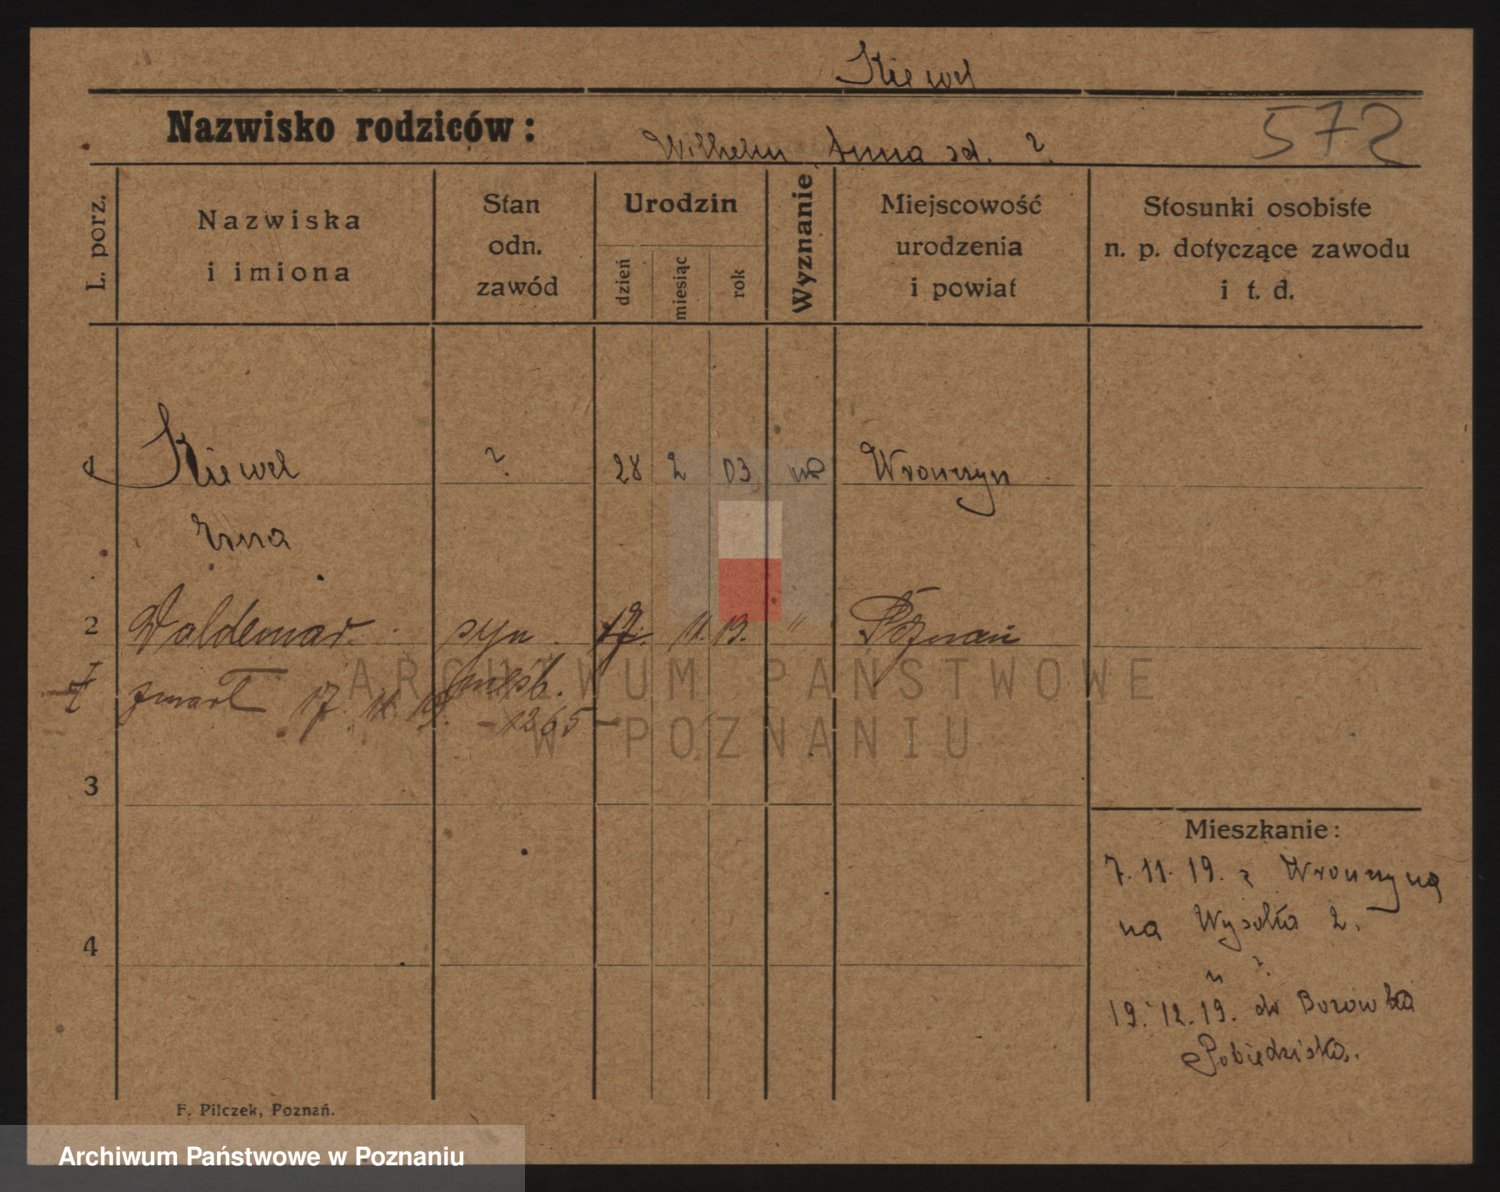 Kiewel
Nazwisko rodziców:
Wilhelm, Anna zd. ?
572
L. porz.
Nazwiska
i imiona
Stan
odn.
zawód
Urodzin
dzień
miesiąc
rok
Wyznanie
Miejscowość
urodzenia
i powiat
Stosunki osobiste
n. p. dotyczące zawodu
i t. d.
1 Kiewel ? 28 2 03, Wronczyn
Erna
2 Waldemar syn 17. 11. 19. " Poznań
zmarł 17. 11. 19. nieśl.
-1265-
3
4
Mieszkanie:
7. 11. 19. z Wronczyna
na Wysoka 2.
u ?
19. 12. 19. do Borowka
Pobiedziska.
F. Pilczek, Poznań.
ARCHIWUM PAŃSTWOWE
W POZNANIU
Archiwum Państwowe w Poznaniu